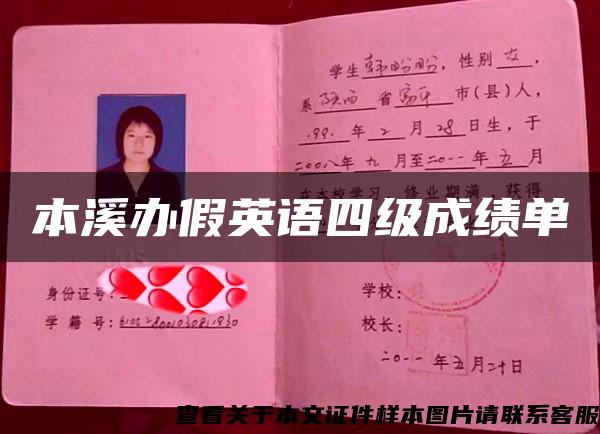 学生韩盼盼，性别女，
系陕西省富平市(县)人，
199 年2月28日生，于
二00八年九月至二0一一年五月
在本校学习，修业期满，获得
本溪办假英语四级成绩单
身份证号：
学校：
学籍号：
校长：
二0一一年五月二十日
查看关于本文证件样本图片请联系客服